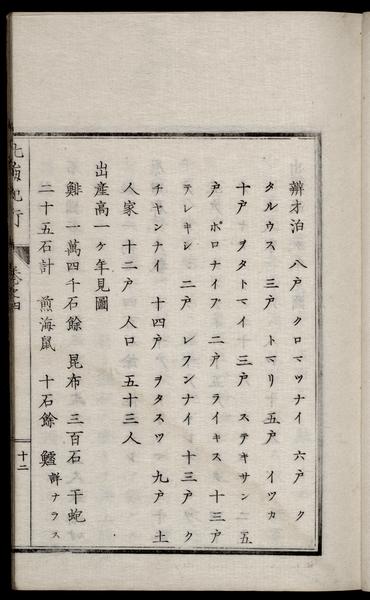 辨才泊 八戸 クロマツナイ 六戸 ク
タルウス 三戸 トマリ 十五戸 イツカ
十戸 ヲタトマイ 十三戸 ステキサン 二五
戸 ポロナイブ 二戸 ライキスタ 十三戸
テレキシ 二戸 レフンナイ 十三戸 ツク
チヤンナイ 十四戸 ヲタスツ 九戸 十土
人家 一十二戸 人口 五十三人
出産高一ケ年見圖
鯡 一萬四千石餘 昆布 三百石 干鮑
二十五石計 煎海鼠 十石餘 鱈 詳ナラス
北海紀行 卷之四 十二